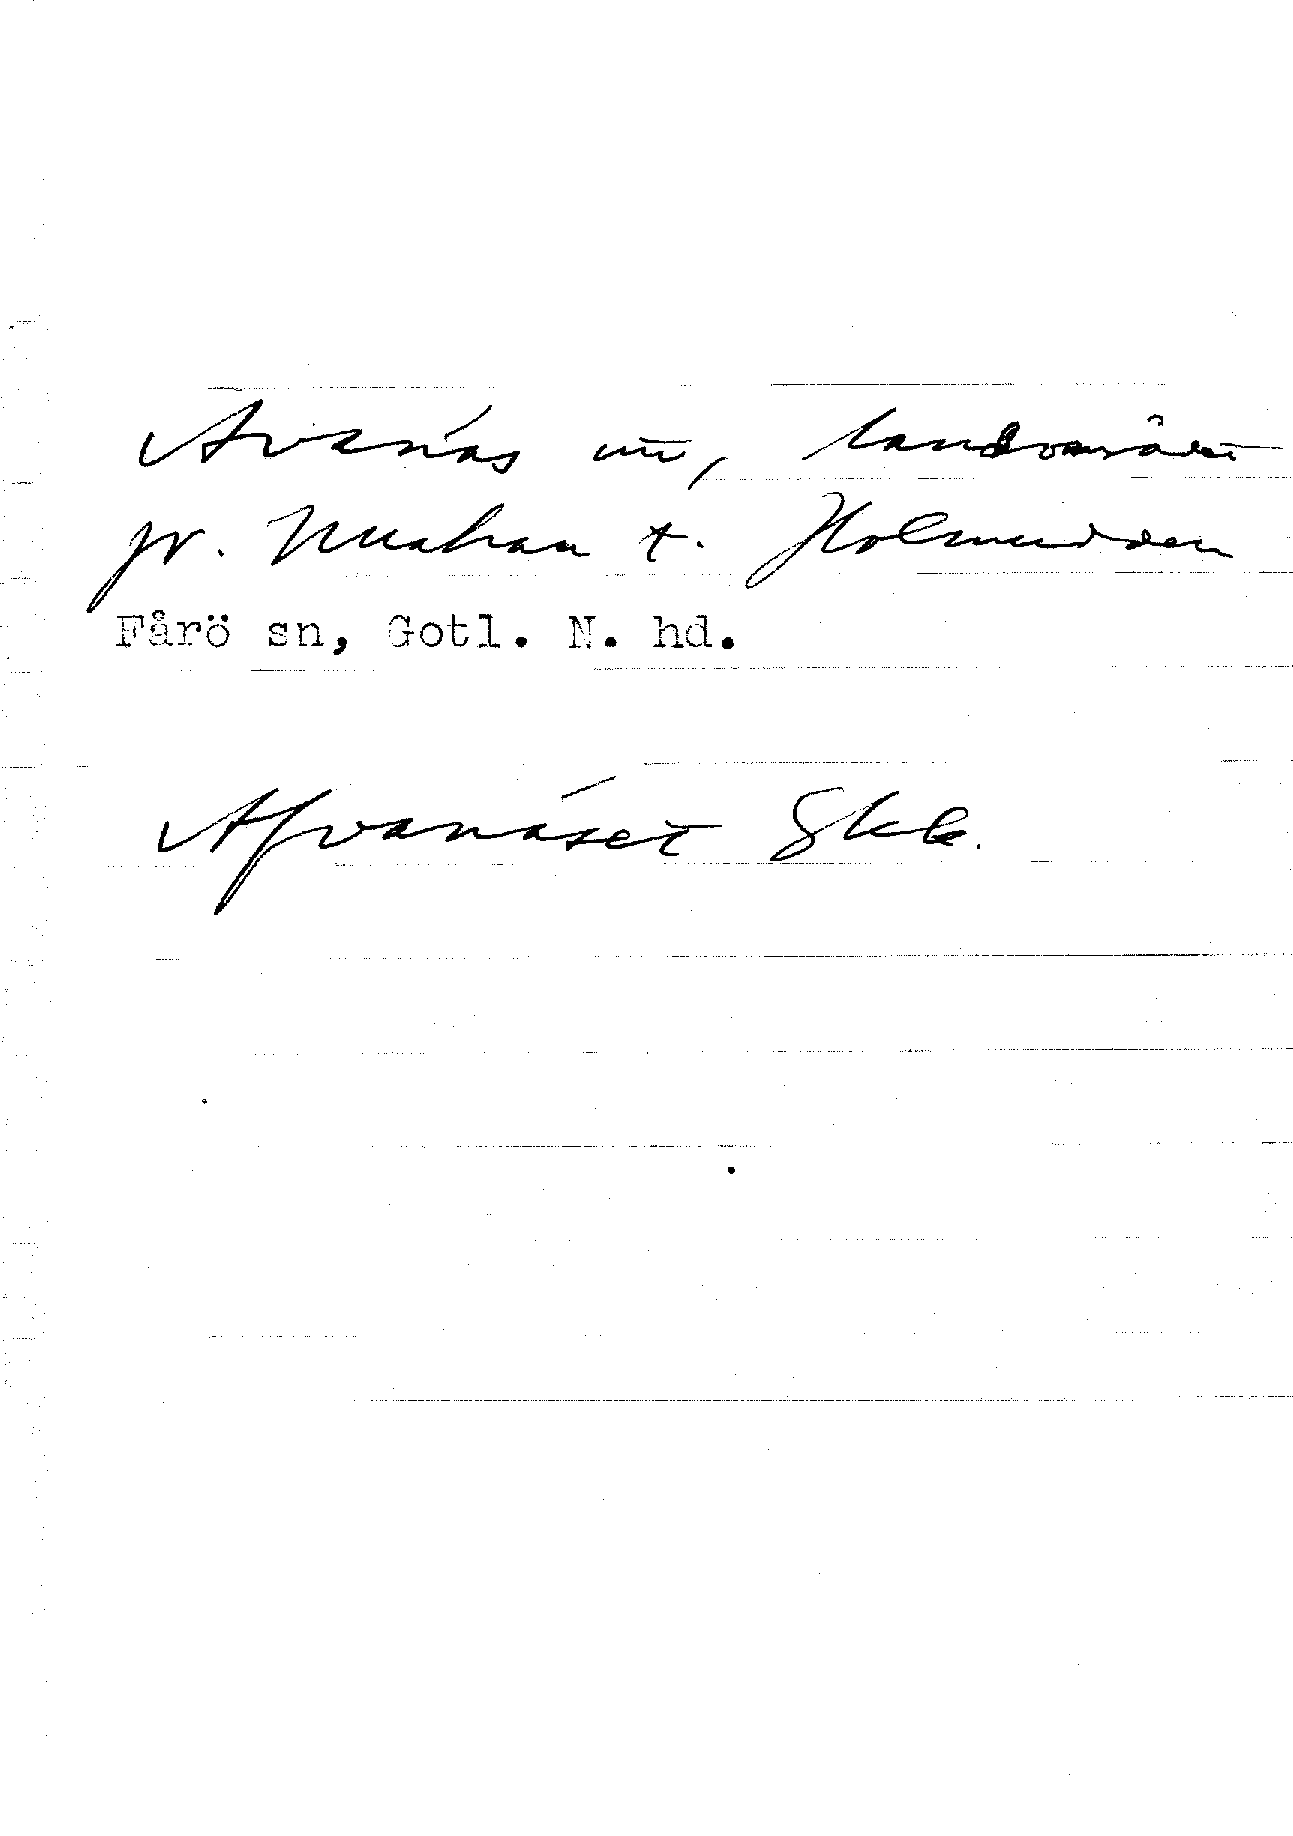 Avanäs un, landområdet
fr. Nuahan t. Holmudden
Fårö sn, Gotl. N. hd.
Afvanäset Skk.